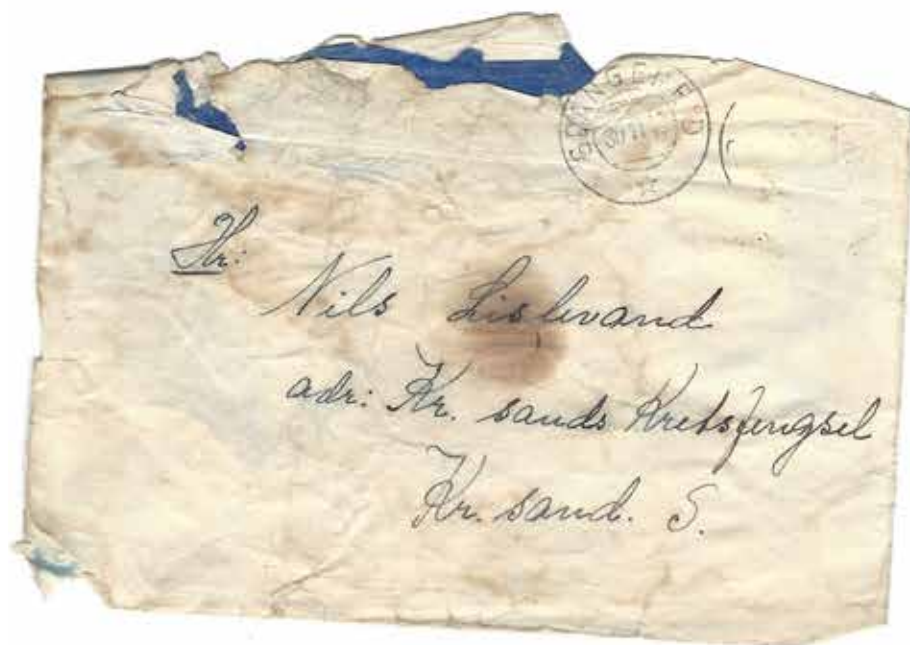 30 11
Hr:
Nils Lislevand
adr: Kr. sands Kretsfengsel
Kr. sand. S.